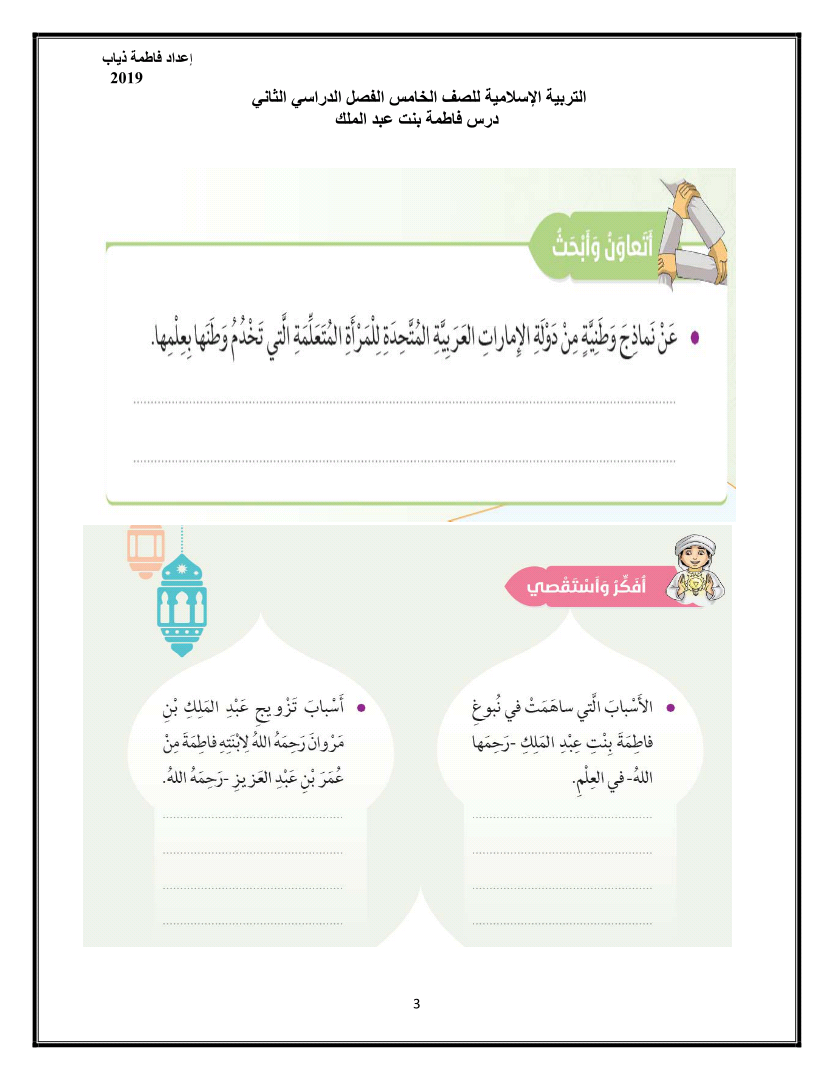 إعداد فاطمة ذياب
2019
التربية الإسلامية للصف الخامس الفصل الدراسي الثاني
درس فاطمة بنت عبد الملك
أَتَعاوَنُ وَأَبْحَثُ
• عَنْ نَماذِجَ وَطَنِيَّةٍ مِنْ دَوْلَةِ الإِماراتِ العَرَبِيَّةِ المُتَّحِدَةِ لِلْمَرْأَةِ المُتَعَلِّمَةِ الَّتي تَخْدُمُ وَطَنَها بِعِلْمِها.
أُفَكِّرُ وَأَسْتَقْصي
• الأَسْبابَ الَّتي ساهَمَتْ في نُبوغِ
فاطِمَةَ بِنْتِ عِبْدِ المَلِكِ -رَحِمَها
اللهُ- في العِلْمِ.
• أَسْبابَ تَزْويجِ عَبْدِ المَلِكِ بْنِ
مَرْوانَ رَحِمَهُ اللهُ لِابْنَتِهِ فاطِمَةَ مِنْ
عُمَرَ بْنِ عَبْدِ العَزيزِ -رَحِمَهُ اللهُ.
3